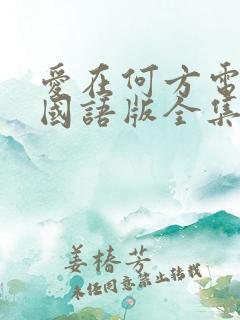 愛在何方電
國語版全集
姜椿芳
未經同意禁止轉載